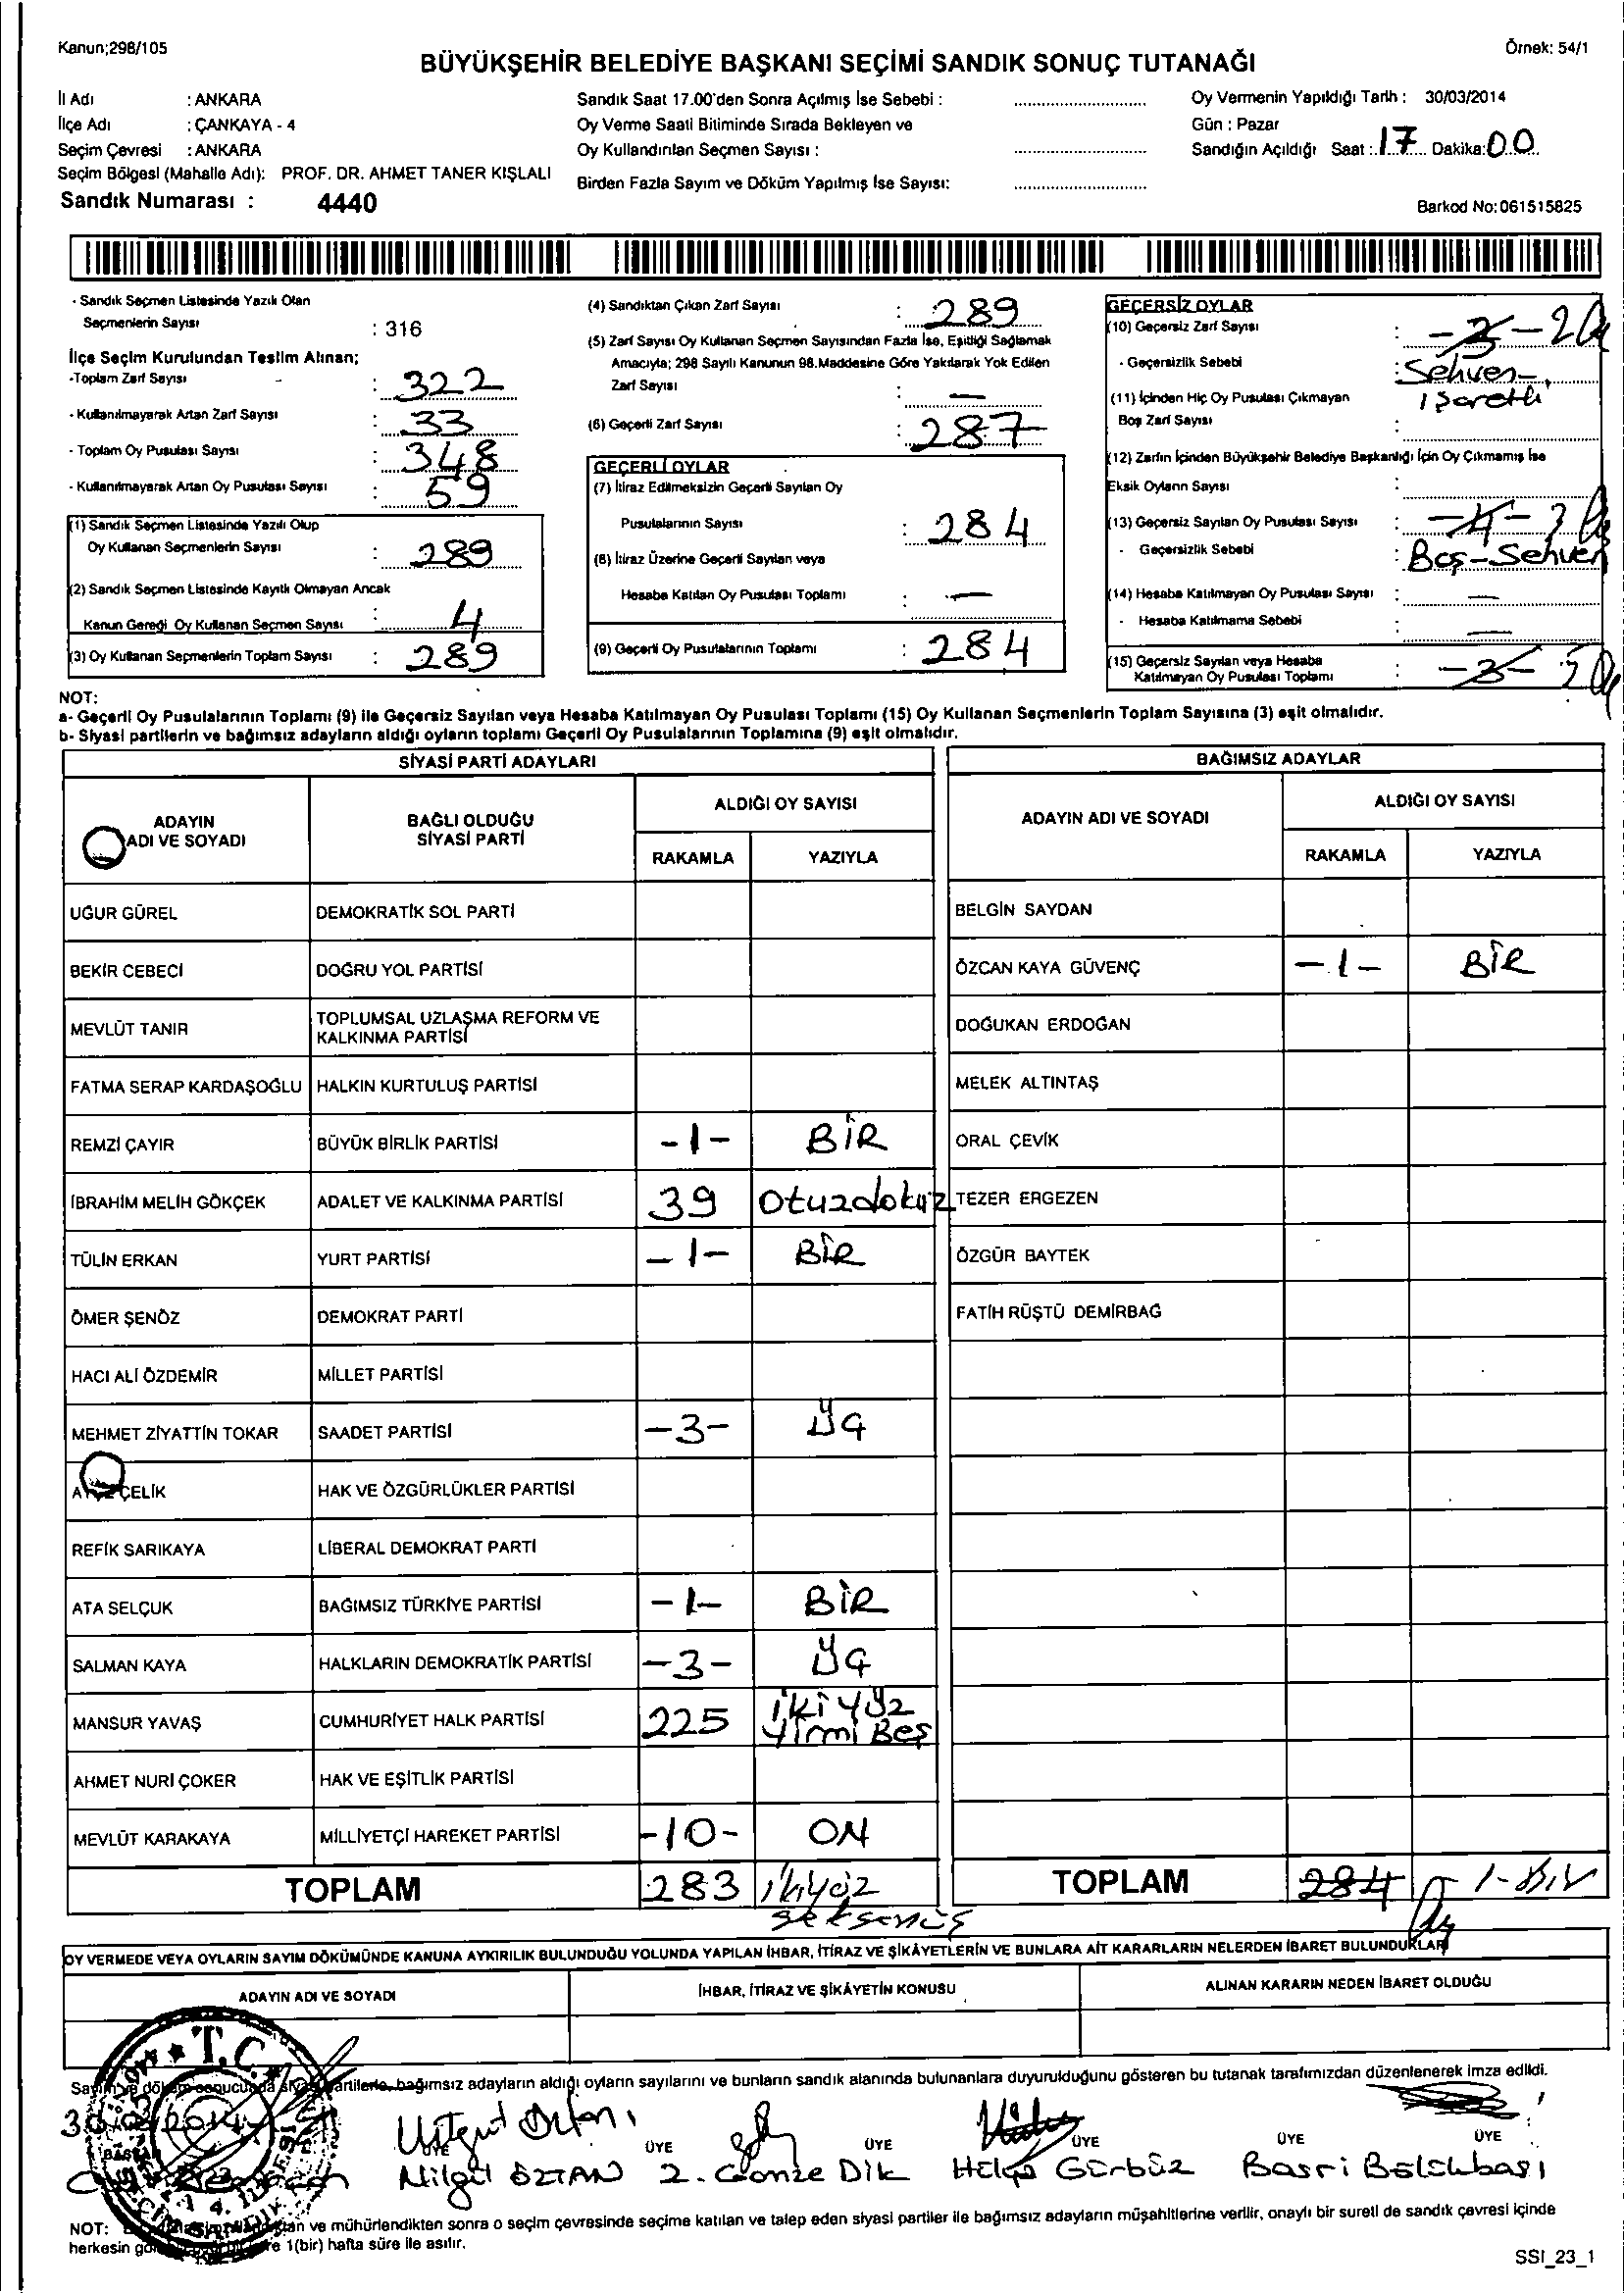 Kanun;298/105
Örnek: 54/1
BÜYÜKŞEHİR BELEDİYE BAŞKANI SEÇİMİ SANDIK SONUÇ TUTANAĞI
İl Adı : ANKARA
İlçe Adı : ÇANKAYA - 4
Seçim Çevresi : ANKARA
Seçim Bölgesi (Mahalle Adı): PROF. DR. AHMET TANER KIŞLALI
Sandık Numarası : 4440
Sandık Saat 17.00'den Sonra Açılmış İse Sebebi :
Oy Verme Saati Bitiminde Sırada Bekleyen ve
Oy Kullandırılan Seçmen Sayısı :
Birden Fazla Sayım ve Döküm Yapılmış İse Sayısı:
Oy Vermenin Yapıldığı Tarih : 30/03/2014
Gün : Pazar
Sandığın Açıldığı Saat : 17 Dakika: 00
Barkod No: 061515825
- Sandık Seçmen Listesinde Yazılı Olan
Seçmenlerin Sayısı : 316
İlçe Seçim Kurulundan Teslim Alınan;
-Toplam Zarf Sayısı : 322
- Kullanılmayarak Artan Zarf Sayısı : 33
- Toplam Oy Pusulası Sayısı : 348
- Kullanılmayarak Artan Oy Pusulası Sayısı : 59
(1) Sandık Seçmen Listesinde Yazılı Olup
Oy Kullanan Seçmenlerin Sayısı : 289
(2) Sandık Seçmen Listesinde Kayıtlı Olmayan Ancak
Kanun Gereği Oy Kullanan Seçmen Sayısı : 4
(3) Oy Kullanan Seçmenlerin Toplam Sayısı : 289
(4) Sandıktan Çıkan Zarf Sayısı : 289
(5) Zarf Sayısı Oy Kullanan Seçmen Sayısından Fazla İse, Eşitliği Sağlamak
Amacıyla; 298 Sayılı Kanunun 98.Maddesine Göre Yakılarak Yok Edilen
Zarf Sayısı : —
(6) Geçerli Zarf Sayısı : 287
GEÇERLİ OYLAR
(7) İtiraz Edilmeksizin Geçerli Sayılan Oy
Pusulalarının Sayısı : 284
(8) İtiraz Üzerine Geçerli Sayılan veya
Hesaba Katılan Oy Pusulası Toplamı : —
(9) Geçerli Oy Pusulalarının Toplamı : 284
GEÇERSİZ OYLAR
(10) Geçersiz Zarf Sayısı : 2
- Geçersizlik Sebebi : Sehven-
işaretli
(11) İçinden Hiç Oy Pusulası Çıkmayan
Boş Zarf Sayısı :
(12) Zarfın İçinden Büyükşehir Belediye Başkanlığı İçin Oy Çıkmamış İse
Eksik Oyların Sayısı :
(13) Geçersiz Sayılan Oy Pusulası Sayısı :
- Geçersizlik Sebebi : Boş-Sehven
(14) Hesaba Katılmayan Oy Pusulası Sayısı : —
- Hesaba Katılmama Sebebi : —
(15) Geçersiz Sayılan veya Hesaba
Katılmayan Oy Pusulası Toplamı :
NOT:
a- Geçerli Oy Pusulalarının Toplamı (9) ile Geçersiz Sayılan veya Hesaba Katılmayan Oy Pusulası Toplamı (15) Oy Kullanan Seçmenlerin Toplam Sayısına (3) eşit olmalıdır.
b- Siyasi partilerin ve bağımsız adayların aldığı oyların toplamı Geçerli Oy Pusulalarının Toplamına (9) eşit olmalıdır.
SİYASİ PARTİ ADAYLARI
ADAYIN
ADI VE SOYADI
BAĞLI OLDUĞU
SİYASİ PARTİ
ALDIĞI OY SAYISI
RAKAMLA YAZIYLA
UĞUR GÜREL DEMOKRATİK SOL PARTİ
BEKİR CEBECİ DOĞRU YOL PARTİSİ
MEVLÜT TANIR TOPLUMSAL UZLAŞMA REFORM VE
KALKINMA PARTİSİ
FATMA SERAP KARDAŞOĞLU HALKIN KURTULUŞ PARTİSİ
REMZİ ÇAYIR BÜYÜK BİRLİK PARTİSİ -1- BİR
İBRAHİM MELİH GÖKÇEK ADALET VE KALKINMA PARTİSİ 39 Otuzdokuz
TÜLİN ERKAN YURT PARTİSİ -1- BİR
ÖMER ŞENÖZ DEMOKRAT PARTİ
HACI ALİ ÖZDEMİR MİLLET PARTİSİ
MEHMET ZİYATTİN TOKAR SAADET PARTİSİ -3- ÜÇ
ÇELİK HAK VE ÖZGÜRLÜKLER PARTİSİ
REFİK SARIKAYA LİBERAL DEMOKRAT PARTİ
ATA SELÇUK BAĞIMSIZ TÜRKİYE PARTİSİ -1- BİR
SALMAN KAYA HALKLARIN DEMOKRATİK PARTİSİ -3- ÜÇ
MANSUR YAVAŞ CUMHURİYET HALK PARTİSİ 225 İKİYÜZ
Yirmi Beş
AHMET NURİ ÇOKER HAK VE EŞİTLİK PARTİSİ
MEVLÜT KARAKAYA MİLLİYETÇİ HAREKET PARTİSİ -10- ON
TOPLAM 283 ikiyüz
seksenüç
BAĞIMSIZ ADAYLAR
ADAYIN ADI VE SOYADI
ALDIĞI OY SAYISI
RAKAMLA YAZIYLA
BELGİN SAYDAN
ÖZCAN KAYA GÜVENÇ -1- BİR
DOĞUKAN ERDOĞAN
MELEK ALTINTAŞ
ORAL ÇEVİK
TEZER ERGEZEN
ÖZGÜR BAYTEK
FATİH RÜŞTÜ DEMİRBAĞ
TOPLAM 284 1-Bir
OY VERMEDE VEYA OYLARIN SAYIM DÖKÜMÜNDE KANUNA AYKIRILIK BULUNDUĞU YOLUNDA YAPILAN İHBAR, İTİRAZ VE ŞİKÂYETLERİN VE BUNLARA AİT KARARLARIN NELERDEN İBARET BULUNDUKLARI
ADAYIN ADI VE SOYADI İHBAR, İTİRAZ VE ŞİKÂYETİN KONUSU ALINAN KARARIN NEDEN İBARET OLDUĞU
T.C.
Sayım ve döküm sonucunda siyasi partilerle, bağımsız adayların aldığı oyların sayılarını ve bunların sandık alanında bulunanlara duyurulduğunu gösteren bu tutanak tarafımızdan düzenlenerek imza edildi.
ÜYE ÜYE ÜYE ÜYE ÜYE ÜYE
Nilgül ÖZTAN 2. Gamze Dik Gürbüz Basri Bölükbaşı
NOT: ve mühürlendikten sonra o seçim çevresinde seçime katılan ve talep eden siyasi partiler ile bağımsız adayların müşahitlerine verilir, onaylı bir sureti de sandık çevresi içinde
herkesin 1(bir) hafta süre ile asılır.
SSI_23_1